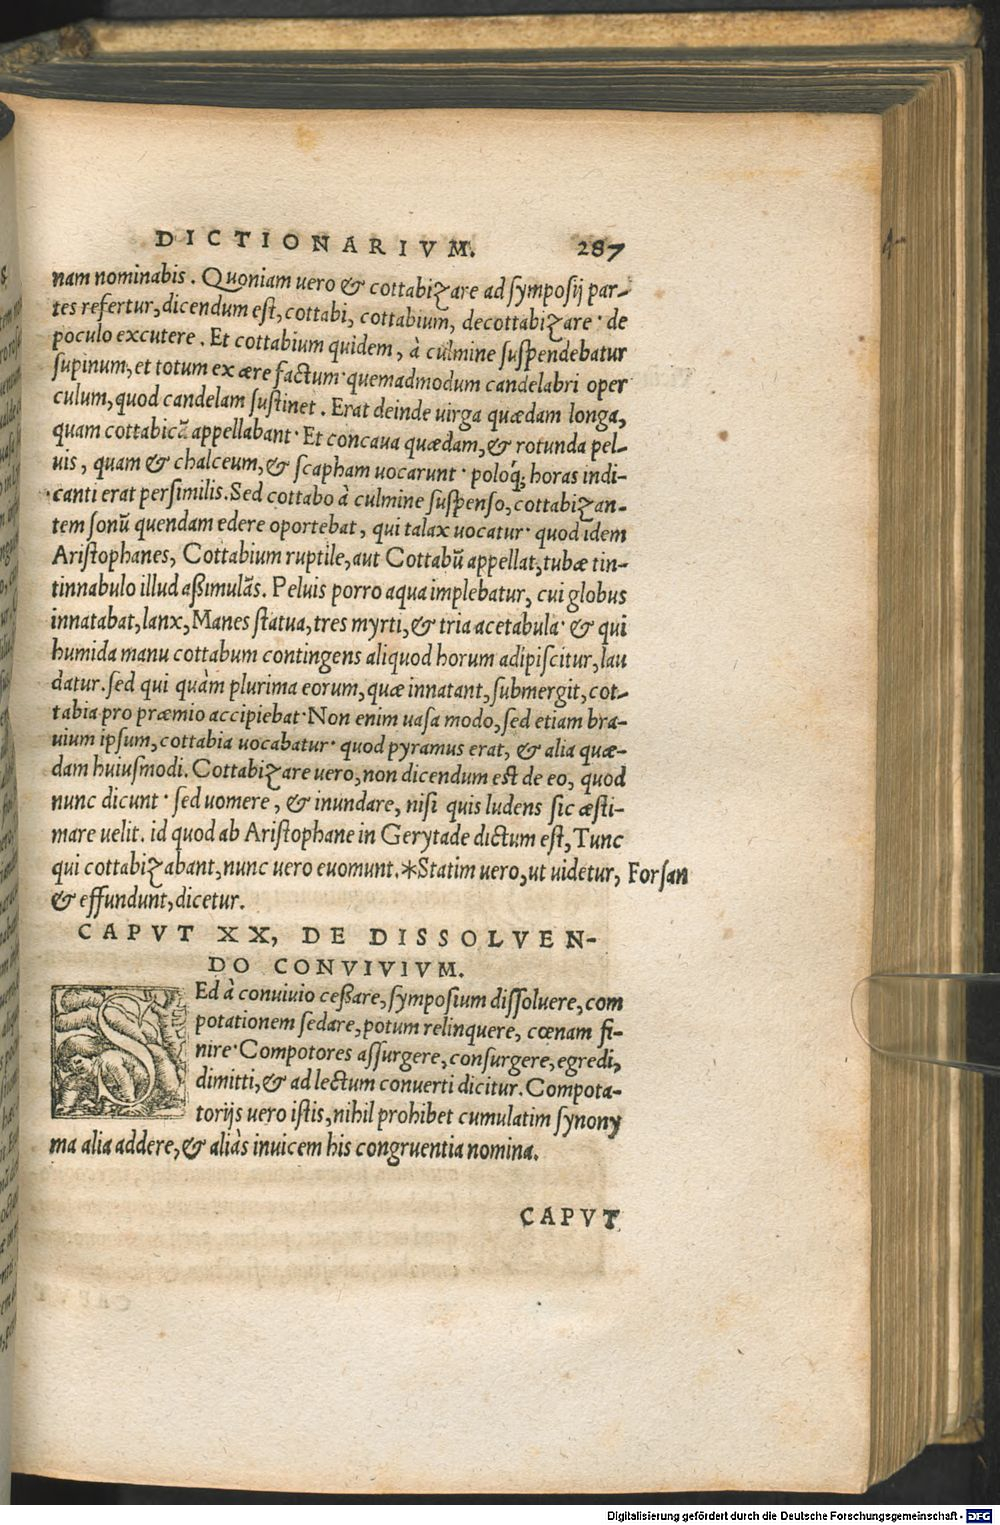 DICTIONARIVM. 287
nam nominabis. Quoniam uero & cottabizare ad symposij par-
tes refertur, dicendum est, cottabi, cottabium, decottabizare· de
poculo excutere. Et cottabium quidem, à culmine suspendebatur
supinum, et totum ex ære factum· quemadmodum candelabri oper
culum, quod candelam sustinet. Erat deinde uirga quædam longa,
quam cottabicã appellabant· Et concaua quædam, & rotunda pel-
uis, quam & chalceum, & scapham uocarunt· poloq́; horas indi-
canti erat persimilis. Sed cottabo à culmine suspenso, cottabizan-
tem sonũ quendam edere oportebat, qui talax uocatur· quod idem
Aristophanes, Cottabium ruptile, aut Cottabũ appellat, tubæ tin-
tinnabulo illud aßimulãs. Peluis porro aqua implebatur, cui globus
innatabat, lanx, Manes statua, tres myrti, & tria acetabula· & qui
humida manu cottabum contingens aliquod horum adipiscitur, lau
datur. sed qui quàm plurima eorum, quæ innatant, submergit, cot-
tabia pro præmio accipiebat· Non enim uasa modo, sed etiam bra-
uium ipsum, cottabia uocabatur· quod pyramus erat, & alia quæ-
dam huiusmodi. Cottabizare uero, non dicendum est de eo, quod
nunc dicunt· sed uomere, & inundare, nisi quis ludens sic æsti-
mare uelit. id quod ab Aristophane in Gerytade dictum est, Tunc
qui cottabizabant, nunc uero euomunt.*Statim uero, ut uidetur, Forsan
& effundunt, dicetur.
CAPVT XX, DE DISSOLVEN-
DO CONVIVIVM.
SEd à conuiuio ceßare, symposium dissoluere, com
potationem sedare, potum relinquere, cœnam fi-
nire· Compotores assurgere, consurgere, egredi,
dimitti, & ad lectum conuerti dicitur. Compota-
torijs uero istis, nihil prohibet cumulatim synony
ma alia addere, & aliàs inuicem his congruentia nomina.
CAPVT
Digitalisierung gefördert durch die Deutsche Forschungsgemeinschaft - DFG